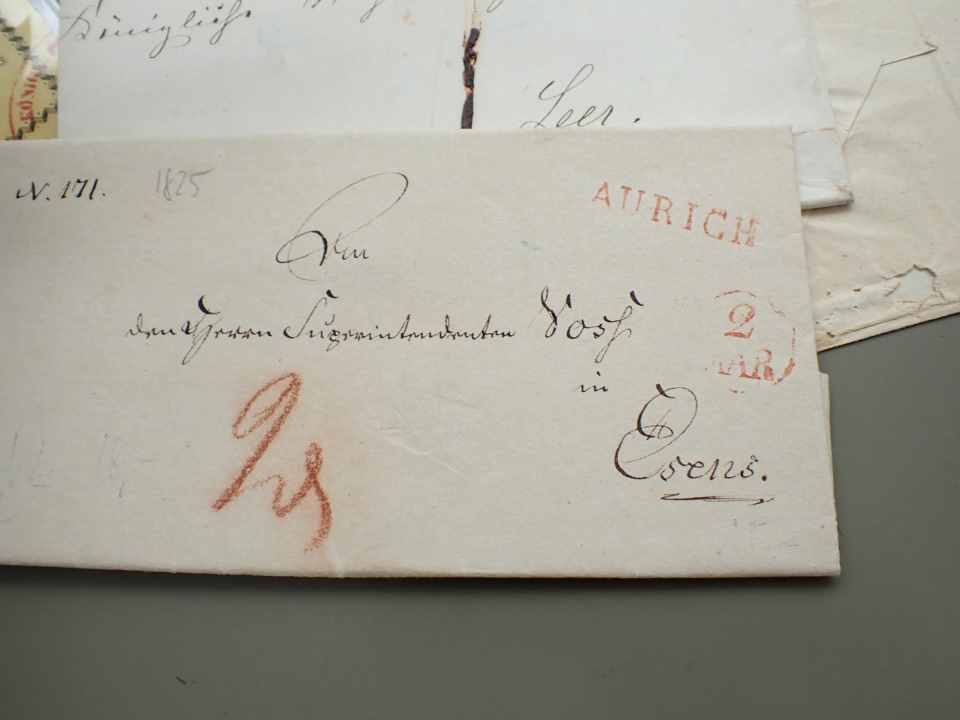 Königliche
Leer.
N. 171.
1825
AURICH
An
den Herrn Superintendenten Vosß
2
MAR
in
Esens.